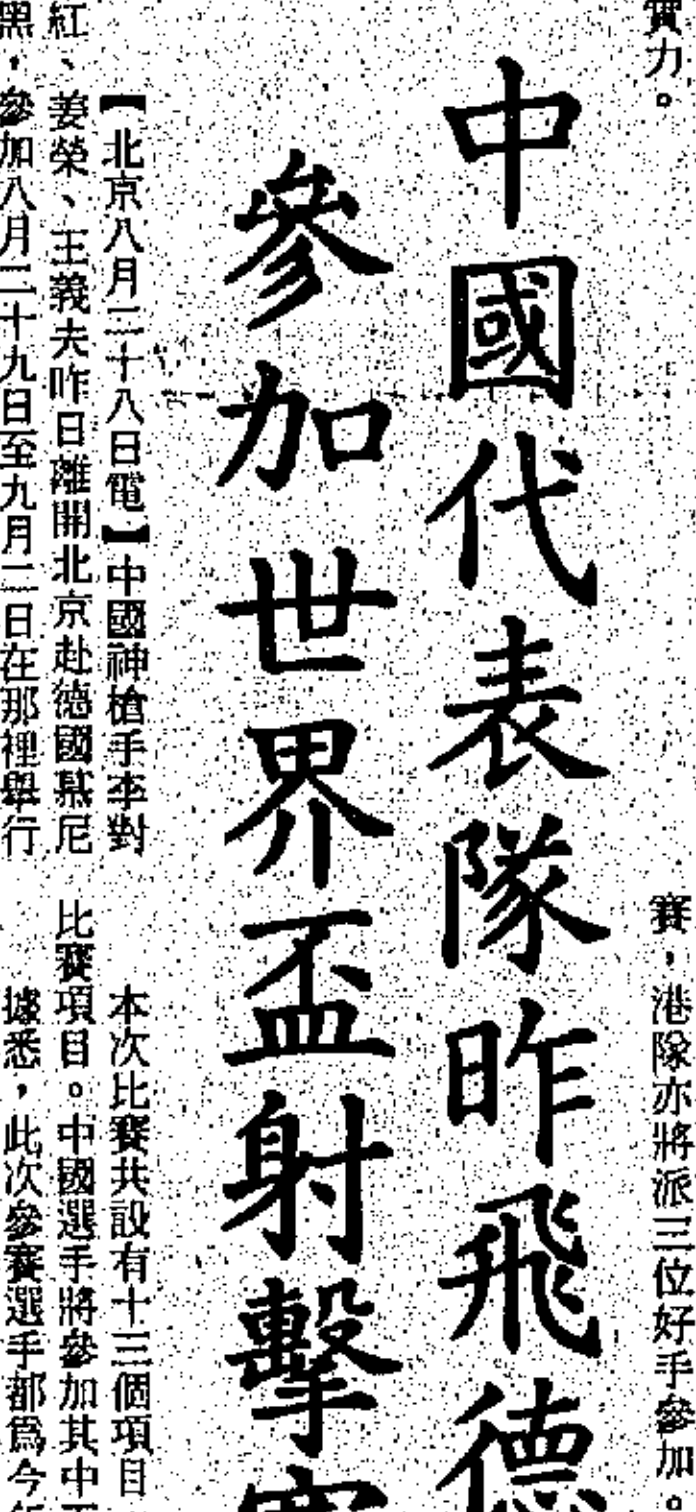 實力。
賽，港隊亦將派三位好手參加。
中國代表隊昨飛德
參加世界盃射擊賽
【北京八月二十八日電】中國神槍手李對
紅、姜榮、王義夫昨日離開北京赴德國慕尼
黑，參加八月二十九日至九月二日在那裡舉行
本次比賽共設有十三個項目
比賽項目。中國選手將參加其中
據悉，此次參賽選手都爲今